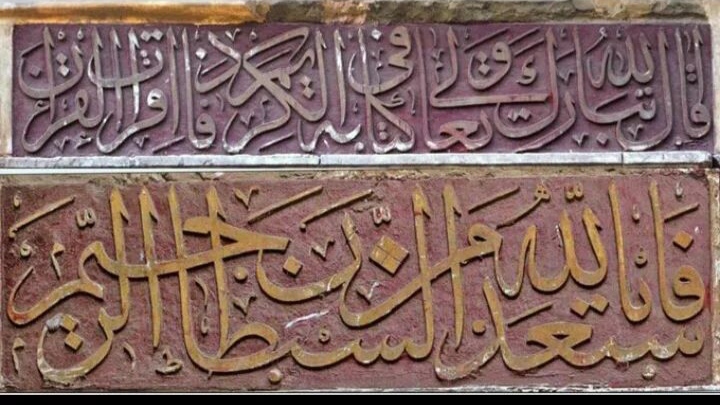 قال الله تبارك وتعالى فى كتابه الكريم فاذا قرات القران
فاستعذ بالله من الشيطان الرجيم